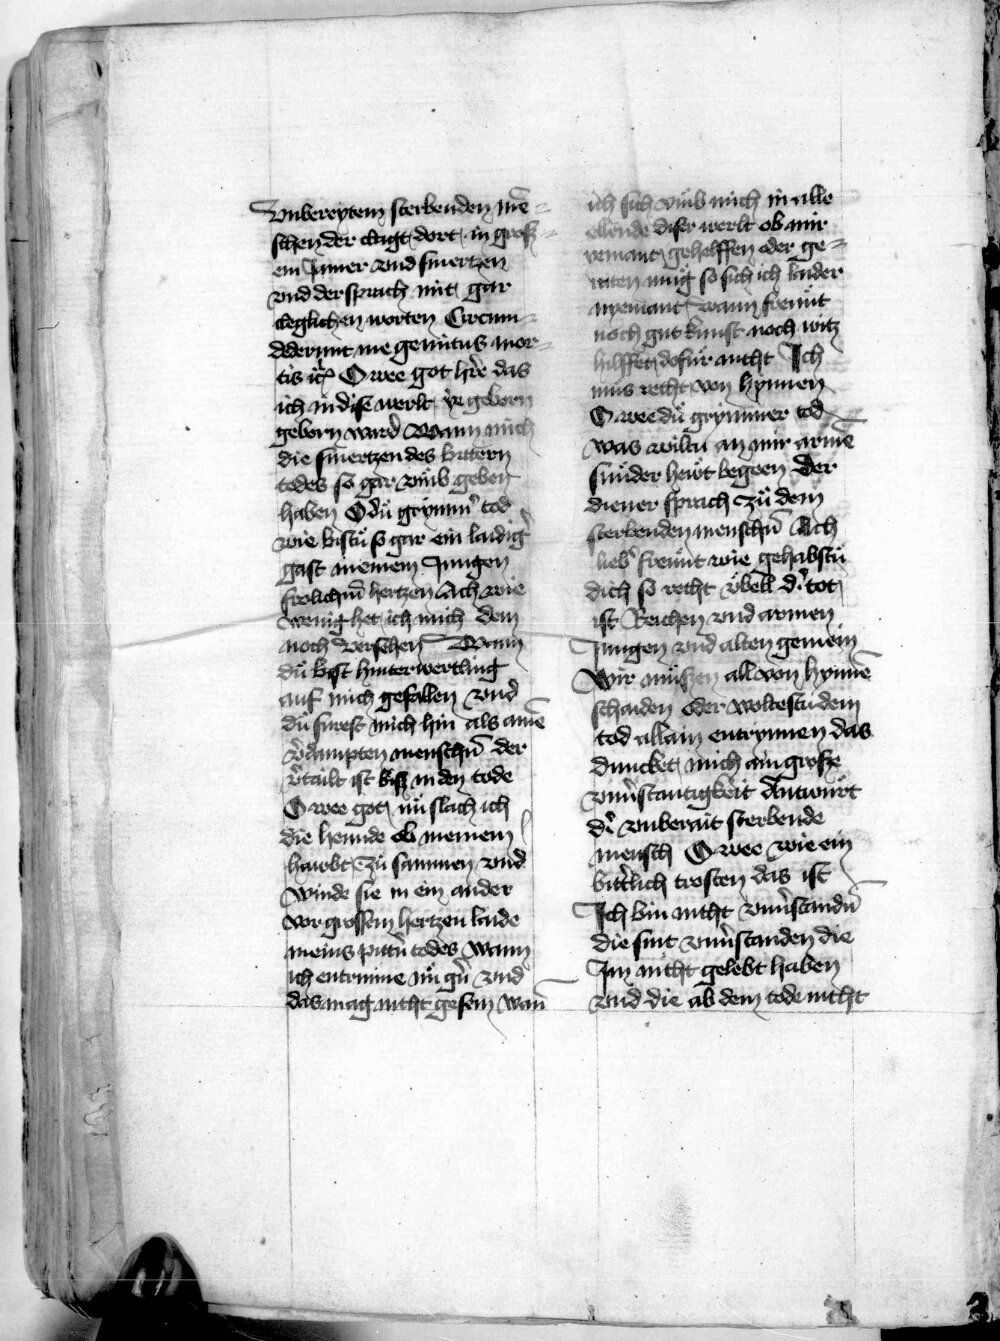 Vnbereytem sterbenden mē=
schen der clagt dort in groß=
em Jamer vnd smertzen
vnd der sprach mit gar
cleglichen worten Circum=
dederunt me gemitus mor=
tis O wee got das
ich in dise werlt ye geborn
geborn ward Wann mich
die smertzen des bittern
todes so gar vmb geben
haben O dů grymm̄ tod
wie bistu so gar ein laidig̛
gast meinem Jungen
frolichn̄ hertzen Ach wie
wenig het ich mich dem
noch versehen Wann
dů bist hinterwertling
auf mich gefallen vnd
du furest mich hin als ainē
v̛dampten menschn̄ der
v̛tailt ist biß in den tode
O wee got nů slach ich
die hennde ob meinem
hawbt zů sammen vnd
winde sie in ein ander
vor grossem hertzen laide
meins pittn̄ todes wann
ich entrinne nů gn̄ vnd
das mag nicht gesein wan̄
ich sich vmb mich in alle
ellende diser werlt ob mir
yemant gehelffen oder ge=
raten mug so sich ich laider
nyemant wann frewnt
noch gut kunst noch witz
hilffet dofur nicht Ich
mus recht von hynnen
O wee dů grymmer tod
was wiltu an mir arme
sunder hewt begeen Der
diener sprach zů dem
sterbenden menschn̄ Ach
lieb̛ frewnt wie gehabstu
dich so recht vbell d̛ tot
ist Reichen vnd armen
Jungen vnd alten gemein
Wir mussen all von hynnē
schaiden oder woltestu dem
tod allain entrynnen das
duncket mich ain große
vnưstantigkeit Antwurt
d̛ vnberait sterbende
mensch O wee wie ein
bitt̛lich trosten das ist
Ich bin nicht vnưstandn̄
die sint vnưstanden die
Im nicht gelebt haben
vnd die ab dem tode nicht